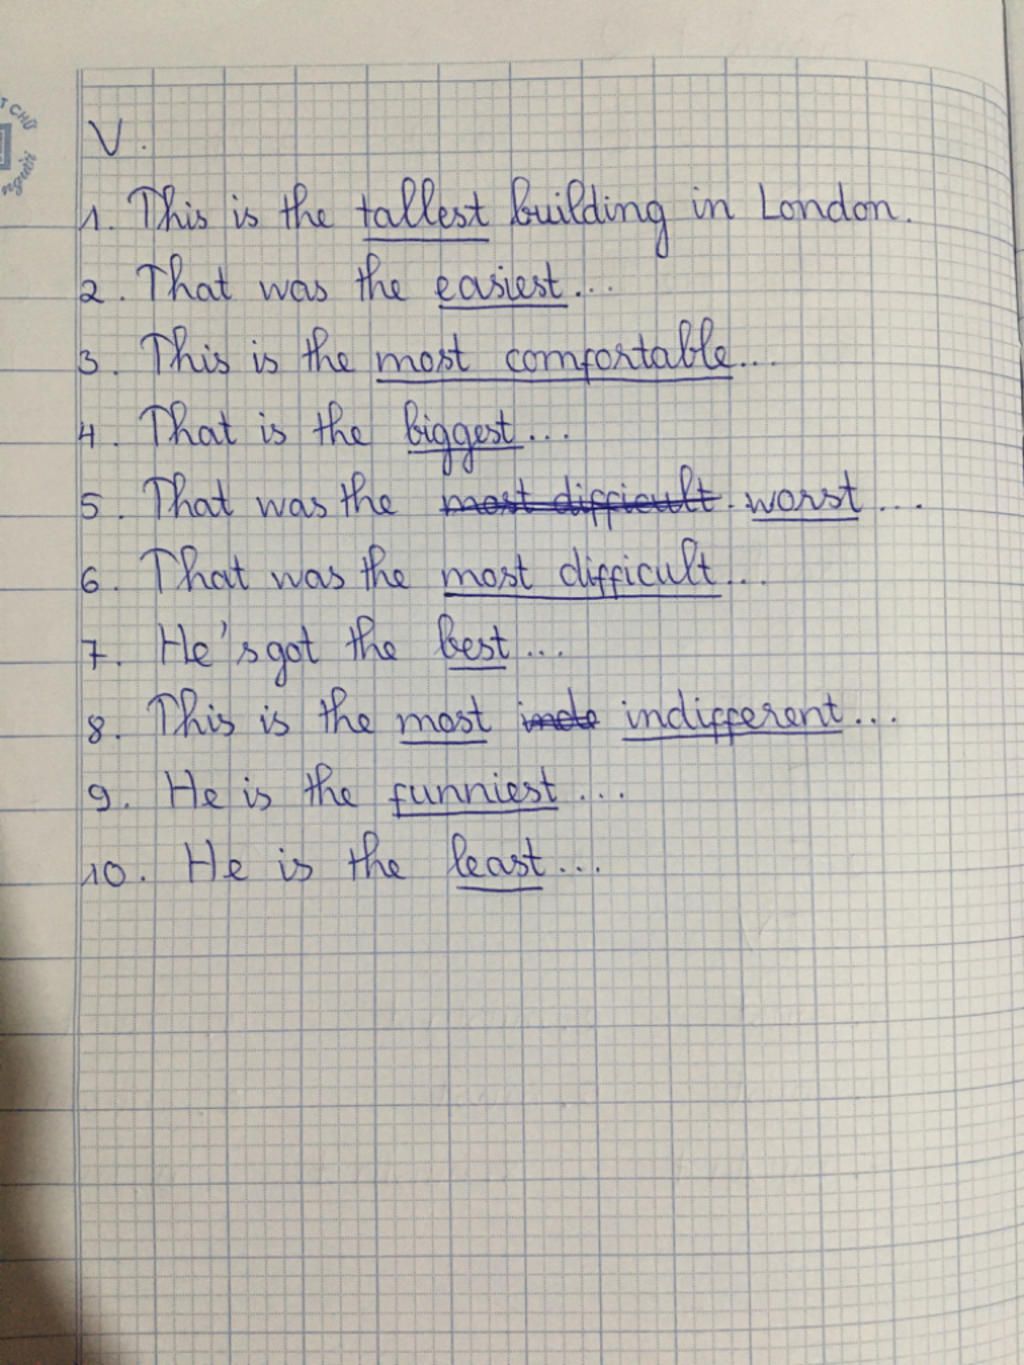 T CHỮ
người
V.
1. This is the tallest building in London.
2. That was the easiest...
3. This is the most comfortable...
4. That is the biggest...
5. That was the most difficult worst...
6. That was the most difficult...
7. He's got the best...
8. This is the most indifferent...
9. He is the funniest...
10. He is the least...